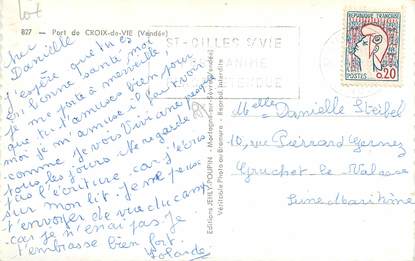 lot
827 - Port de CROIX-de-VIE (Vendée)
ST-GILLES S/VIE
REPUBLIQUE FRANÇAISE
POSTES 0,20
Danielle
J'espère que tu es
en bonne santé, moi
je me porte à merveille,
que tu t'amuses bien, pour
moi je m'amuse
comme je vois
tous les jours. Ne regarde
pas l'écriture car j'écris
sur mon lit. Je ne peux
t'envoyer de vue du camp
car je n'en ai pas. Je
t'embrasse bien fort.
Yolande
Editions JEHLY-POUPIN - Mortagne-sur-Sèvre (Vendée)
Véritable Photo au Bromure - Reprod. interdite
Melle Danielle
10, rue Pierrard
Gruchet le Valasse
Seine Maritime